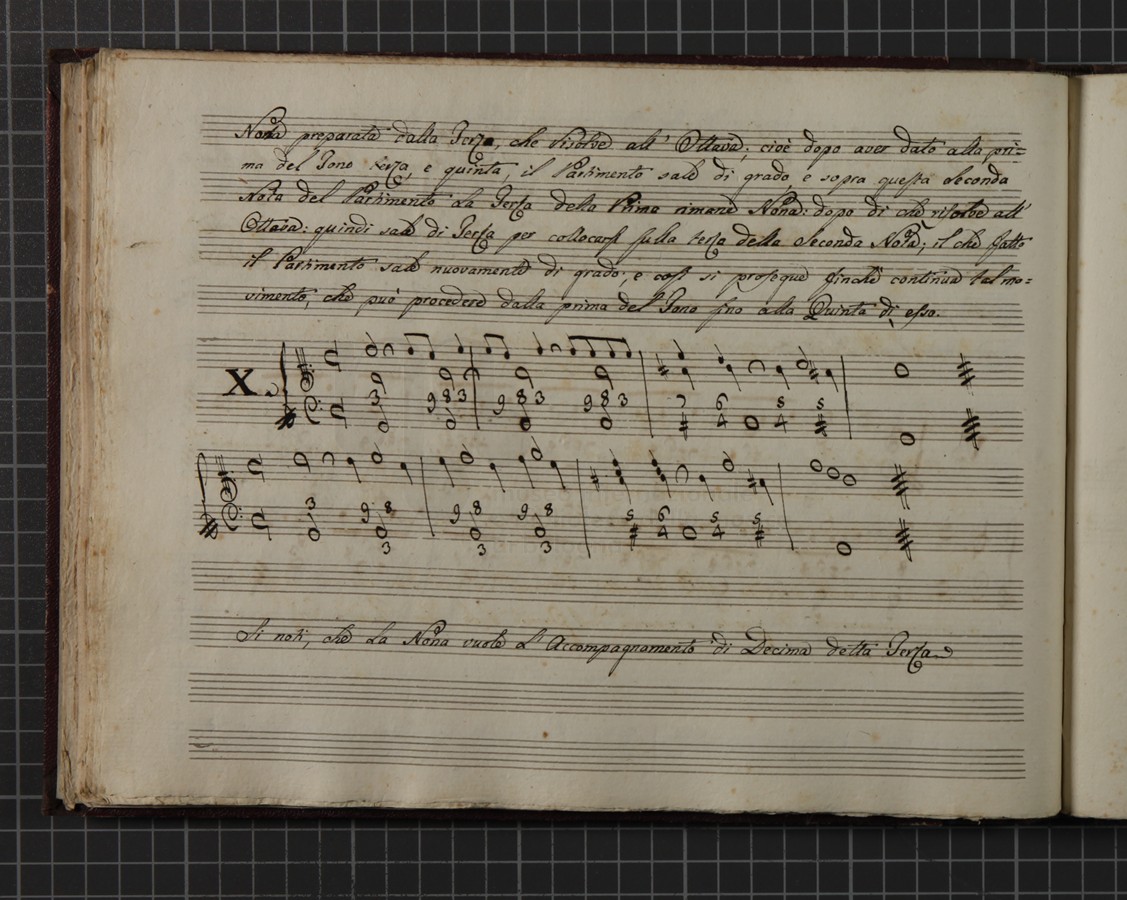 Nona preparata dalla Terza, che risolve all' Ottava; cioè dopo aver dato alla pri=
ma del Tono terza, e quinta, il Partimento sale di grado, e sopra questa Seconda
Nota del Partimento La Terza della Prima rimane Nona: dopo di che risolve all'
Ottava: quindi sale di Terza per collocarsi sulla terza della Seconda Nota; il che fatto
il Partimento sale nuovamente di grado; e così si prosegue finchè continua tal mo=
vimento, che può procedere dalla prima del Tono sino alla Quinta di esso.
X.
3 9 8 3 9 8 3 9 8 3 7 6 5 5
4 4
3 9 8 9 8 9 8 5 6 5 5
4 4
3 3 3
Si noti, che La Nona vuole L'Accompagnamento di Decima detta Terza